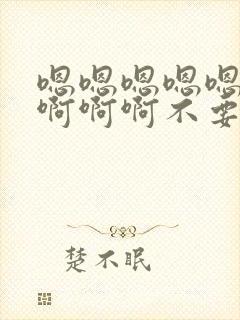 嗯嗯嗯嗯嗯
啊啊啊不要
楚不眠